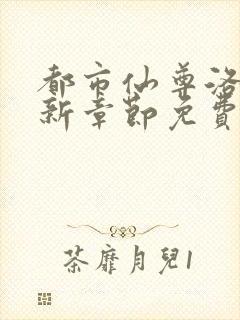 都市仙尊洛
新章節免費
荼靡月兒1